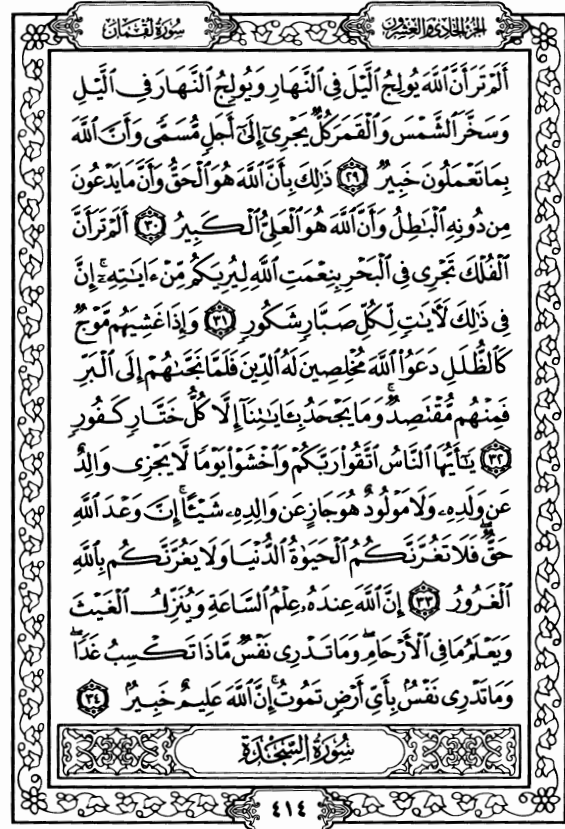 سُورَةُ لُقْمَان الجُزْءُ الحَادِي وَالعِشْرُون
أَلَمْ تَرَ أَنَّ ٱللَّهَ يُولِجُ ٱلَّيْلَ فِى ٱلنَّهَارِ وَيُولِجُ ٱلنَّهَارَ فِى ٱلَّيْلِ
وَسَخَّرَ ٱلشَّمْسَ وَٱلْقَمَرَ كُلٌّ يَجْرِىٓ إِلَىٰٓ أَجَلٍ مُّسَمًّى وَأَنَّ ٱللَّهَ
بِمَا تَعْمَلُونَ خَبِيرٌ ٢٩ ذَٰلِكَ بِأَنَّ ٱللَّهَ هُوَ ٱلْحَقُّ وَأَنَّ مَا يَدْعُونَ
مِن دُونِهِ ٱلْبَٰطِلُ وَأَنَّ ٱللَّهَ هُوَ ٱلْعَلِىُّ ٱلْكَبِيرُ ٣٠ أَلَمْ تَرَ أَنَّ
ٱلْفُلْكَ تَجْرِى فِى ٱلْبَحْرِ بِنِعْمَتِ ٱللَّهِ لِيُرِيَكُم مِّنْ ءَايَٰتِهِۦٓ ۚ إِنَّ
فِى ذَٰلِكَ لَءَايَٰتٍ لِّكُلِّ صَبَّارٍ شَكُورٍ ٣١ وَإِذَا غَشِيَهُم مَّوْجٌ
كَٱلظُّلَلِ دَعَوُا۟ ٱللَّهَ مُخْلِصِينَ لَهُ ٱلدِّينَ فَلَمَّا نَجَّىٰهُمْ إِلَى ٱلْبَرِّ
فَمِنْهُم مُّقْتَصِدٌ ۚ وَمَا يَجْحَدُ بِـَٔايَٰتِنَآ إِلَّا كُلُّ خَتَّارٍ كَفُورٍ
٣٢ يَٰٓأَيُّهَا ٱلنَّاسُ ٱتَّقُوا۟ رَبَّكُمْ وَٱخْشَوْا۟ يَوْمًا لَّا يَجْزِى وَالِدٌ
عَن وَلَدِهِۦ وَلَا مَوْلُودٌ هُوَ جَازٍ عَن وَالِدِهِۦ شَيْـًٔا ۚ إِنَّ وَعْدَ ٱللَّهِ
حَقٌّ ۖ فَلَا تَغُرَّنَّكُمُ ٱلْحَيَوٰةُ ٱلدُّنْيَا وَلَا يَغُرَّنَّكُم بِٱللَّهِ
ٱلْغَرُورُ ٣٣ إِنَّ ٱللَّهَ عِندَهُۥ عِلْمُ ٱلسَّاعَةِ وَيُنَزِّلُ ٱلْغَيْثَ
وَيَعْلَمُ مَا فِى ٱلْأَرْحَامِ ۖ وَمَا تَدْرِى نَفْسٌ مَّاذَا تَكْسِبُ غَدًا ۖ
وَمَا تَدْرِى نَفْسٌۢ بِأَىِّ أَرْضٍ تَمُوتُ ۚ إِنَّ ٱللَّهَ عَلِيمٌ خَبِيرٌۢ ٣٤
سُورَةُ السَّجْدَةِ
٤١٤